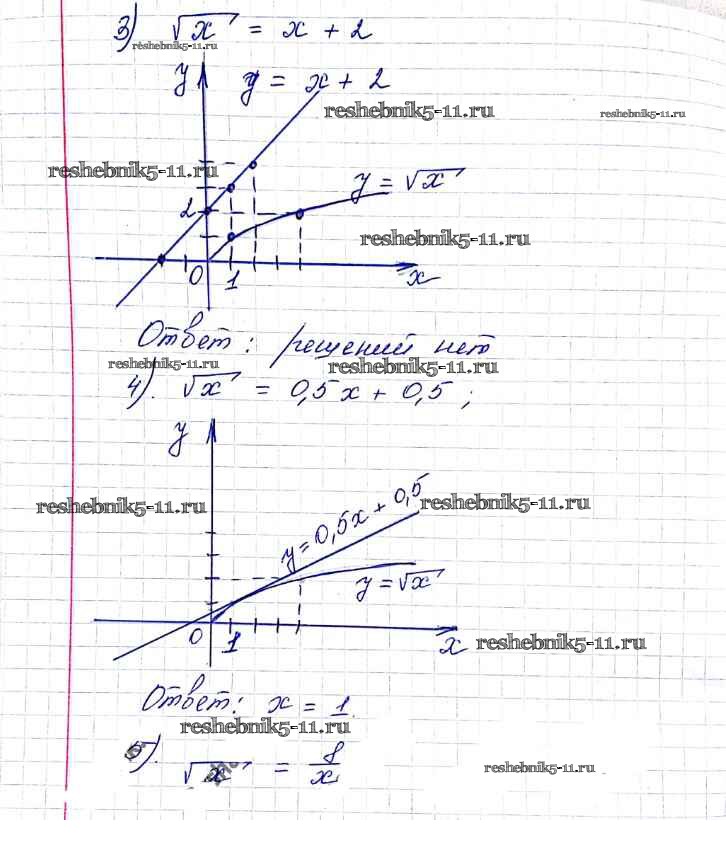 3) √x = x + 2
reshebnik5-11.ru
y y = x + 2
reshebnik5-11.ru
reshebnik5-11.ru
reshebnik5-11.ru
y = √x
2
reshebnik5-11.ru
0 1 x
Ответ: решений нет
reshebnik5-11.ru
reshebnik5-11.ru
4). √x = 0,5x + 0,5;
y
reshebnik5-11.ru
y=0,5x + 0,5
reshebnik5-11.ru
y = √x
0 1 x
reshebnik5-11.ru
Ответ: x = 1
reshebnik5-11.ru
5). √x = 8/x
reshebnik5-11.ru